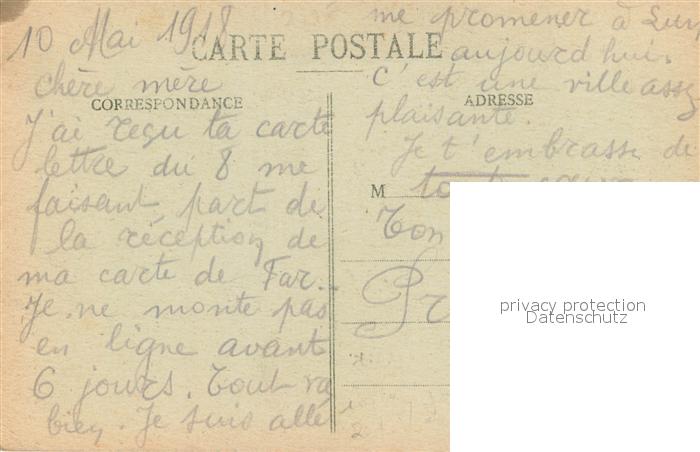 10 Mai 1918
CARTE POSTALE
chère mère
CORRESPONDANCE
J'ai reçu ta carte
lettre du 8 me
faisant part de
la réception de
ma carte de Far.
Je ne monte pas
en ligne avant
6 jours. Tout va
bien. Je suis allé
me promener à
aujourd'hui.
C'est une ville assez
ADRESSE
plaisante.
Je t'embrasse de
M
tout cœur
Ton
privacy protection
Datenschutz